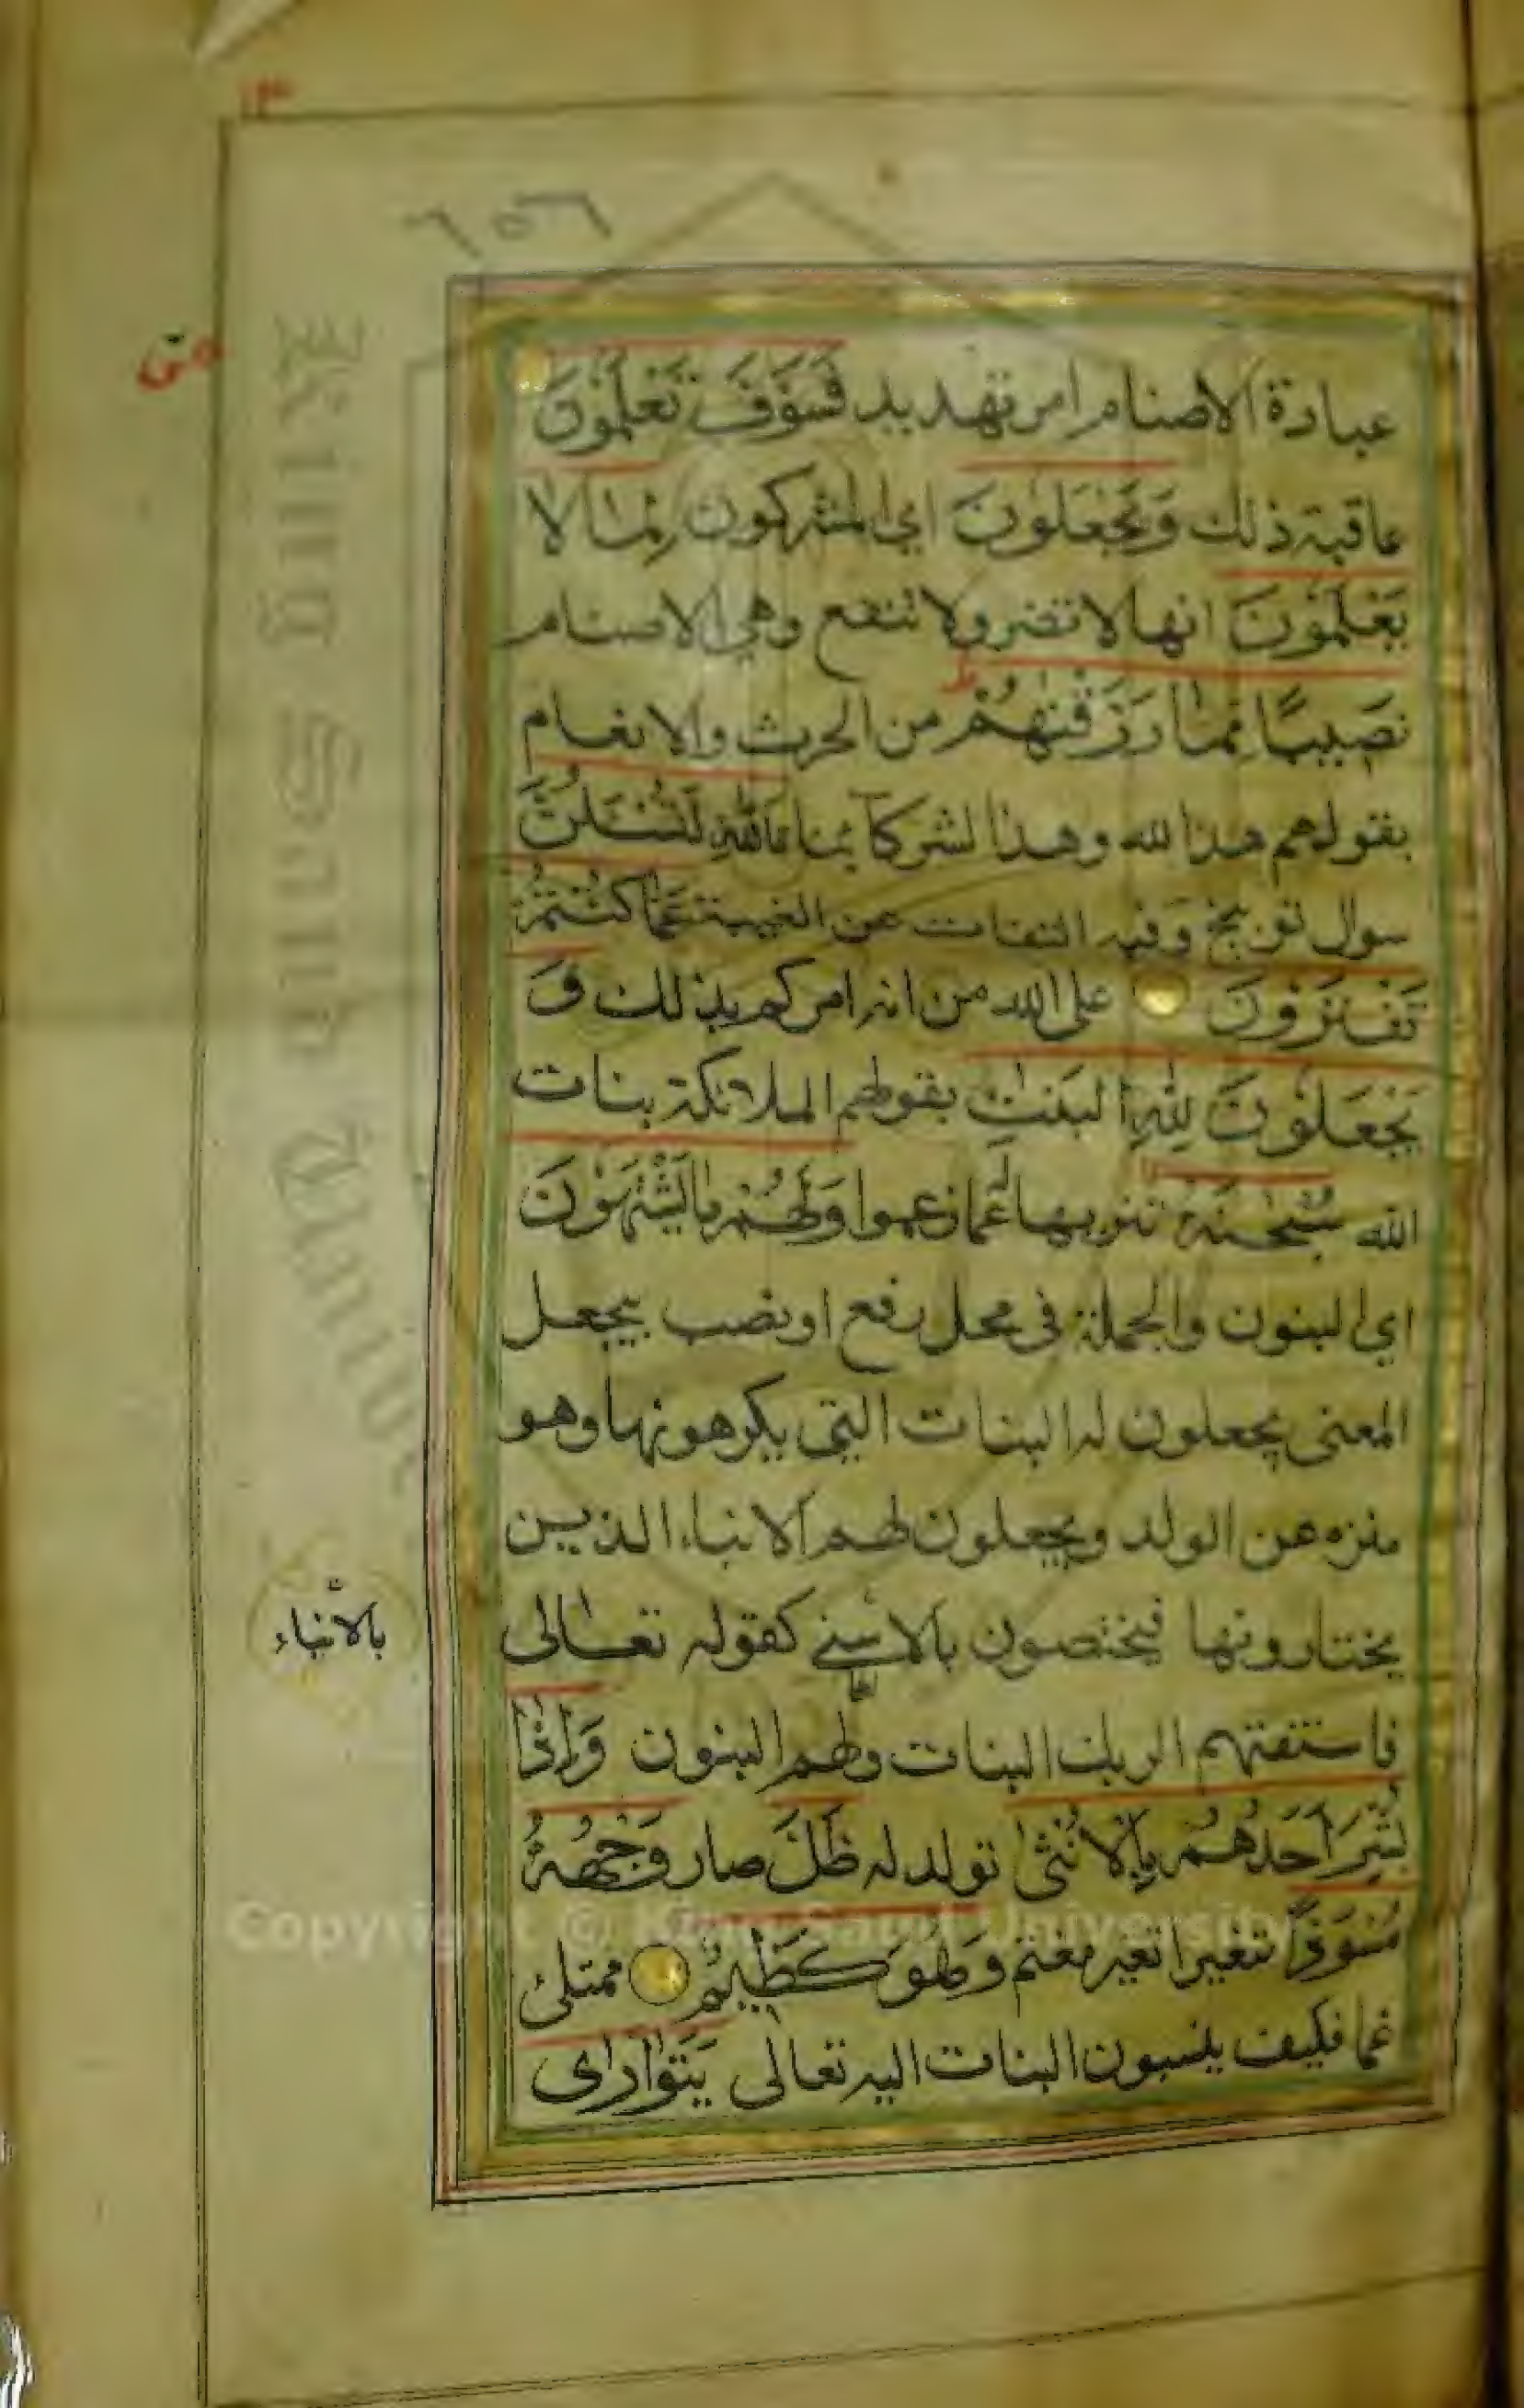 ١٣
٦٥٦
ص
عبادة الاصنام امر تهديد فَسَوْفَ تَعْلَمُونَ
عاقبة ذلك وَيَجْعَلُونَ اي المشركون لِمَا لَا
يَعْلَمُونَ انها لا تضر ولا تنفع وهي الاصنام
نَصِيبًا مِمَّا رَزَقْنٰهُمْ من الحرث والانعام
بقولهم هذا لله وهذا لشركآئنا تَاللهِ لَتُسْـَٔلُنَّ
سوال توبيخ وفيه التفات عن الغيبة عَمَّا كُنْتُمْ
تَفْتَرُونَ على الله من انه امركم بذلك وَ
يَجْعَلُونَ لِلّٰهِ الْبَنٰتِ بقولهم الملائكة بنات
الله سُبْحٰنَهُ تنزيها له عما زعموا وَلَهُمْ مَا يَشْتَهُونَ
اي البنون والجملة في محل رفع او نصب بيجعل
المعنى يجعلون له البنات التي يكرهونها وهو
منزه عن الولد ويجعلون لهم الابناء الذين
يختارونها فيختصون بالاسنى كقوله تعالى
بالابناء
فاستفتهم الربك البنات ولهم البنون وَإِذَا
بُشِّرَ أَحَدُهُمْ بِالْأُنْثٰى تولد له ظَلَّ صار وَجْهُهُ
مُسْوَدًّا متغيرا تغير مغتم وَهُوَ كَظِيمٌ ممتلئ
غما فكيف ينسبون البنات اليه تعالى يَتَوَارٰى
Copyright © King Saud University